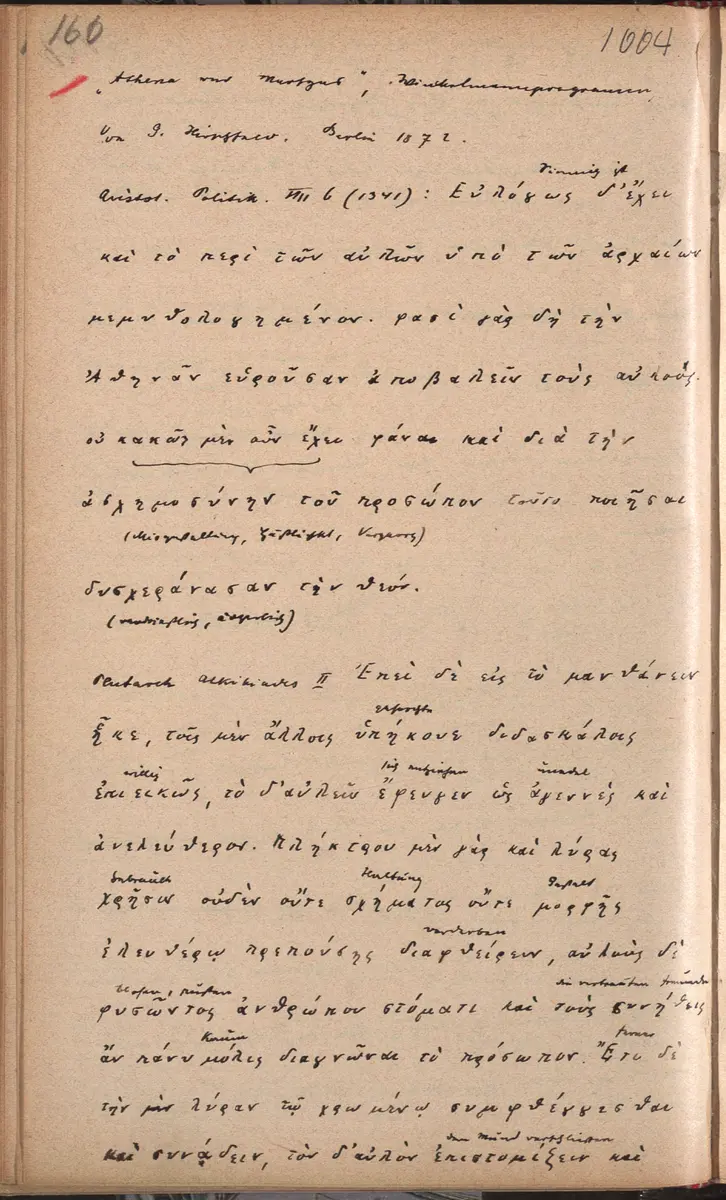 160
1004
"Athena und Marsyas", Winckelmannsprogramm
Von G. Hirschfeld. Berlin 1872.
Sinnig ist
Aristot. Politik. VIII 6 (1341): Εὐλόγως δ'ἔχει
καὶ τὸ περὶ τῶν αὐλῶν ὑπὸ τῶν ἀρχαίων
μεμυθολογημένον. φασὶ γὰρ δὴ τὴν
Ἀθηνᾶν εὑροῦσαν ἀποβαλεῖν τοὺς αὐλούς.
οὐ κακῶς μὲν οὖν ἔχει φάναι καὶ διὰ τὴν
ἀσχημοσύνην τοῦ προσώπου τοῦτο ποιῆσαι
δυσχεράνασαν τὴν θεόν.
Plutarch Alkibiades II Ἐπεὶ δὲ εἰς τὸ μανθάνειν
gehorchte
ἧκε, τοῖς μὲν ἄλλοις ὑπήκουε διδασκάλοις
willig
ἐπιεικῶς, τὸ δ'αὐλεῖν ἔφευγεν ὡς ἀγεννὲς καὶ
ἀνελεύθερον. Πλήκτρου μὲν γὰρ καὶ λύρας
Gebrauch Haltung Gestalt
χρῆσιν οὐδὲν οὔτε σχήματος οὔτε μορφῆς
ἐλευθέρῳ πρεπούσης διαφθείρειν, αὐλοὺς δὲ
die vertrauten Freunde
φυσῶντος ἀνθρώπου στόματι καὶ τοὺς συνήθεις
Kaum ferner
ἂν πάνυ μόλις διαγνῶναι τὸ πρόσωπον. Ἔτι δὲ
τὴν μὲν λύραν τῷ χρωμένῳ συμφθέγγεσθαι
den Mund verschließen
καὶ συνᾴδειν, τὸν δ'αὐλὸν ἐπιστομίζειν καὶ